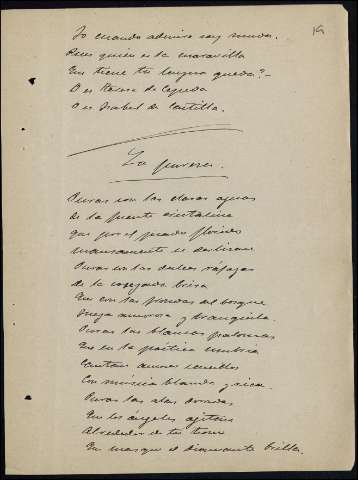 19
Yo cuando admiro soy mudo.
Pues quién es la maravilla
Que tiene tu lengua queda?—
O es Teresa de Cepeda
O es Isabel de Castilla.
La pureza.
Puras son las claras aguas
de la fuente cristalina
que por el prado florido
mansamente se deslizan
Puras son las dulces ráfagas
de la sosegada brisa
Que con las frondas del bosque
juega amorosa y tranquila.
Puras las blancas palomas
Que en la poética umbría
Cantan amores sencillos
Con música blanda y rica.
Puras las alas doradas
Que los ángeles agitan
Alrededor de tu trono
En mas que el diamante brilla.